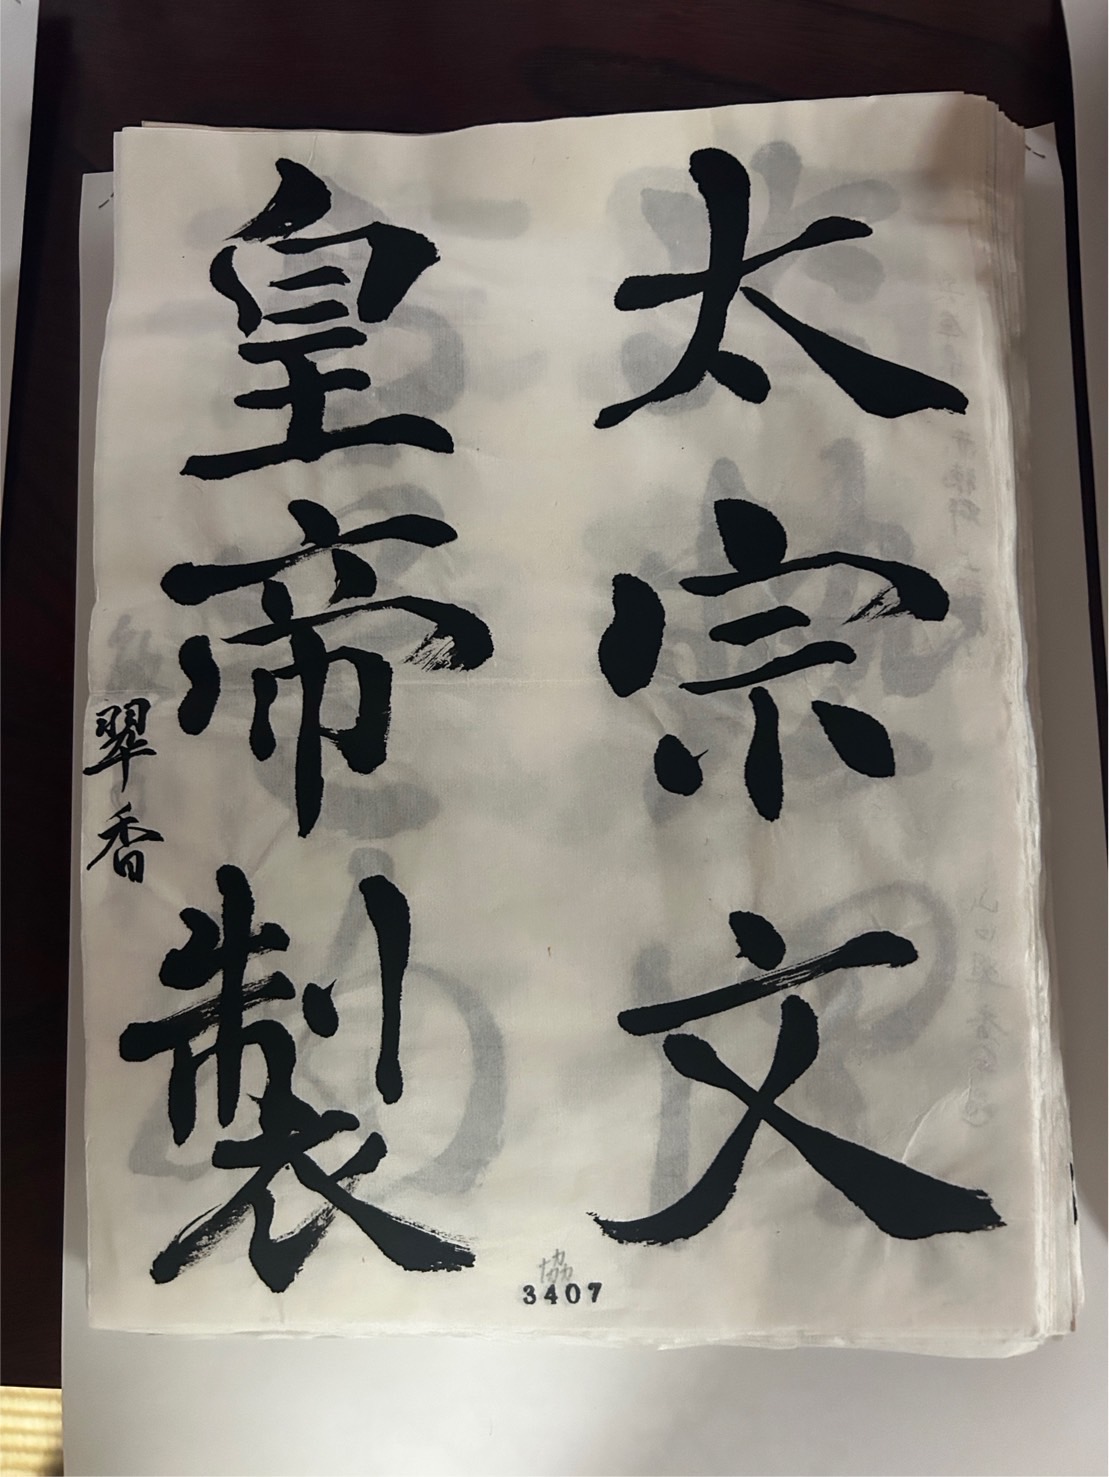 太宗文
皇帝製
翠香
協
3407